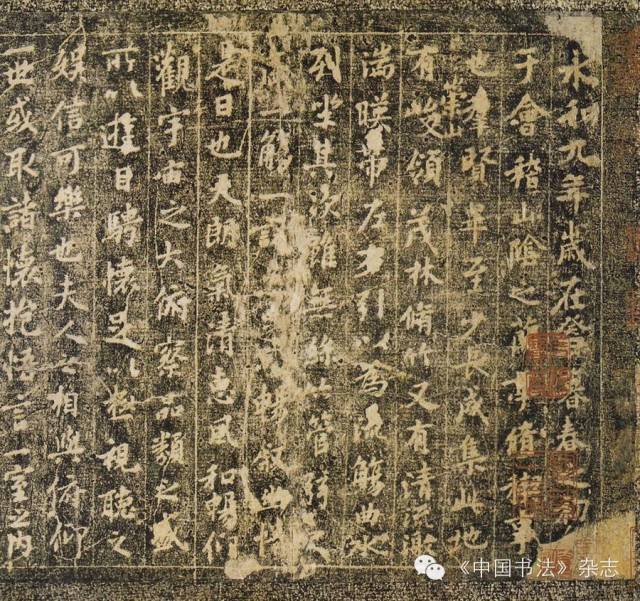 永和九年歲在癸暮春之初
于會稽山陰之蘭亭脩禊事
也羣賢畢至少長咸集此地
有崇山峻領茂林脩竹又有清流激
湍暎帶左右引以為流觴曲水
列坐其次雖無絲竹管弦之
盛一觴一詠以暢敘幽情
是日也天朗氣清惠風和暢仰
觀宇宙之大俯察品類之盛
所以遊目騁懷足以極視聽之
娛信可樂也夫人之相與俯仰
一世或取諸懷抱悟言一室之內
《中国书法》杂志